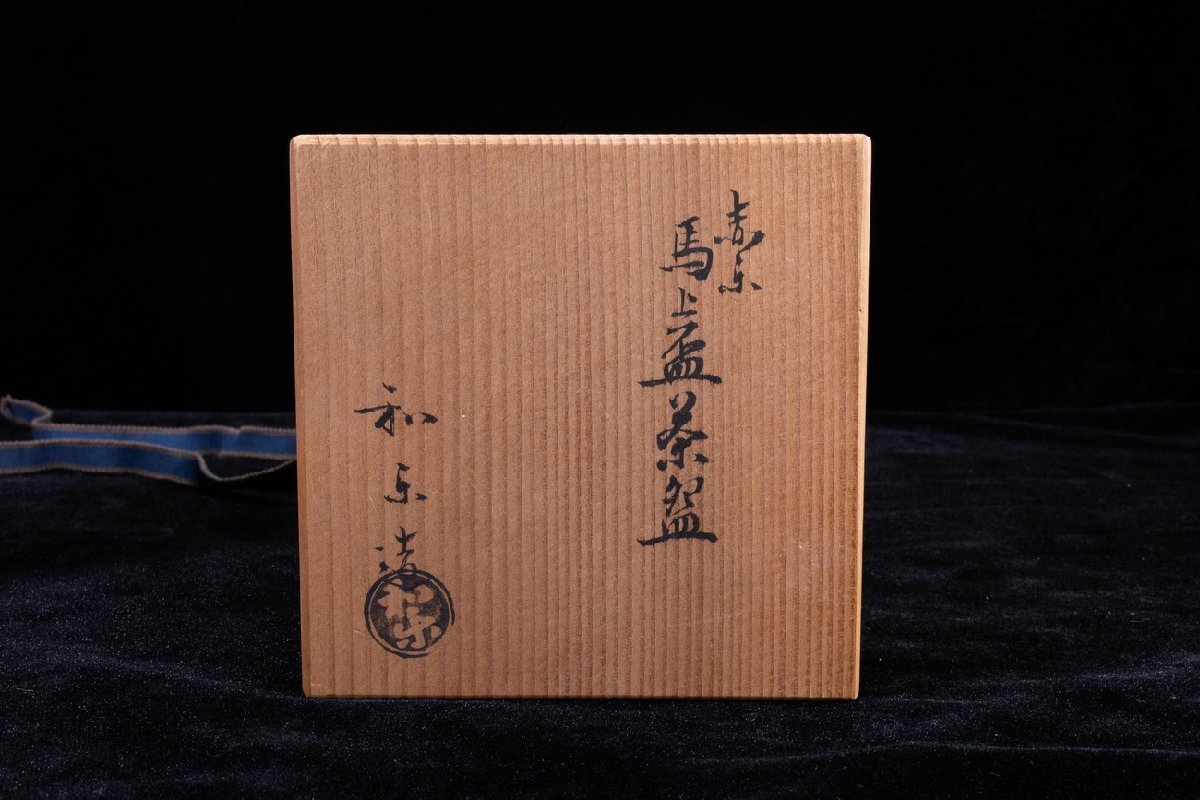 赤楽
馬上盃茶盌
和楽造
和楽